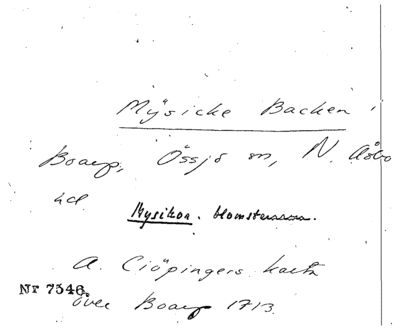 Mÿsicke Backen i
Boarp, Össjö sn, N. Åsbo
hd
Mysikon. blomsternamn.
A. Ciöpingers karta
över Boarp 1713.
Nr 7546.